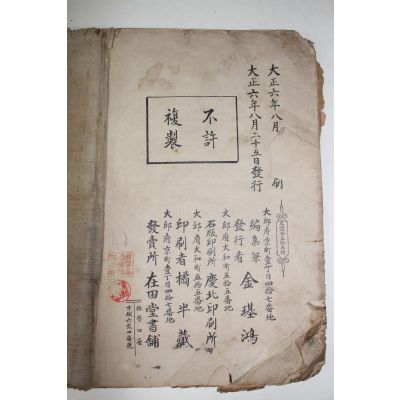 大正六年八月　　　　刷
大正六年八月二十五日發行
不許
複製
大邱府京町壹丁目四拾七番地
編集兼
發行者　金基鴻
大邱府大和町五拾五番地
石版印刷所　慶北印刷所
大邱府大和町五拾五番地
印刷者　橘半藏
大邱府京町壹丁目四拾七番地
發賣所　在田堂書鋪